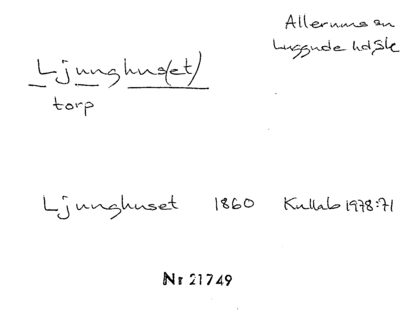 Allerums sn
Luggude hd, Sk
Ljunghus(et)
torp
Ljunghuset 1860 Kullab 1978:71
Nr 21749